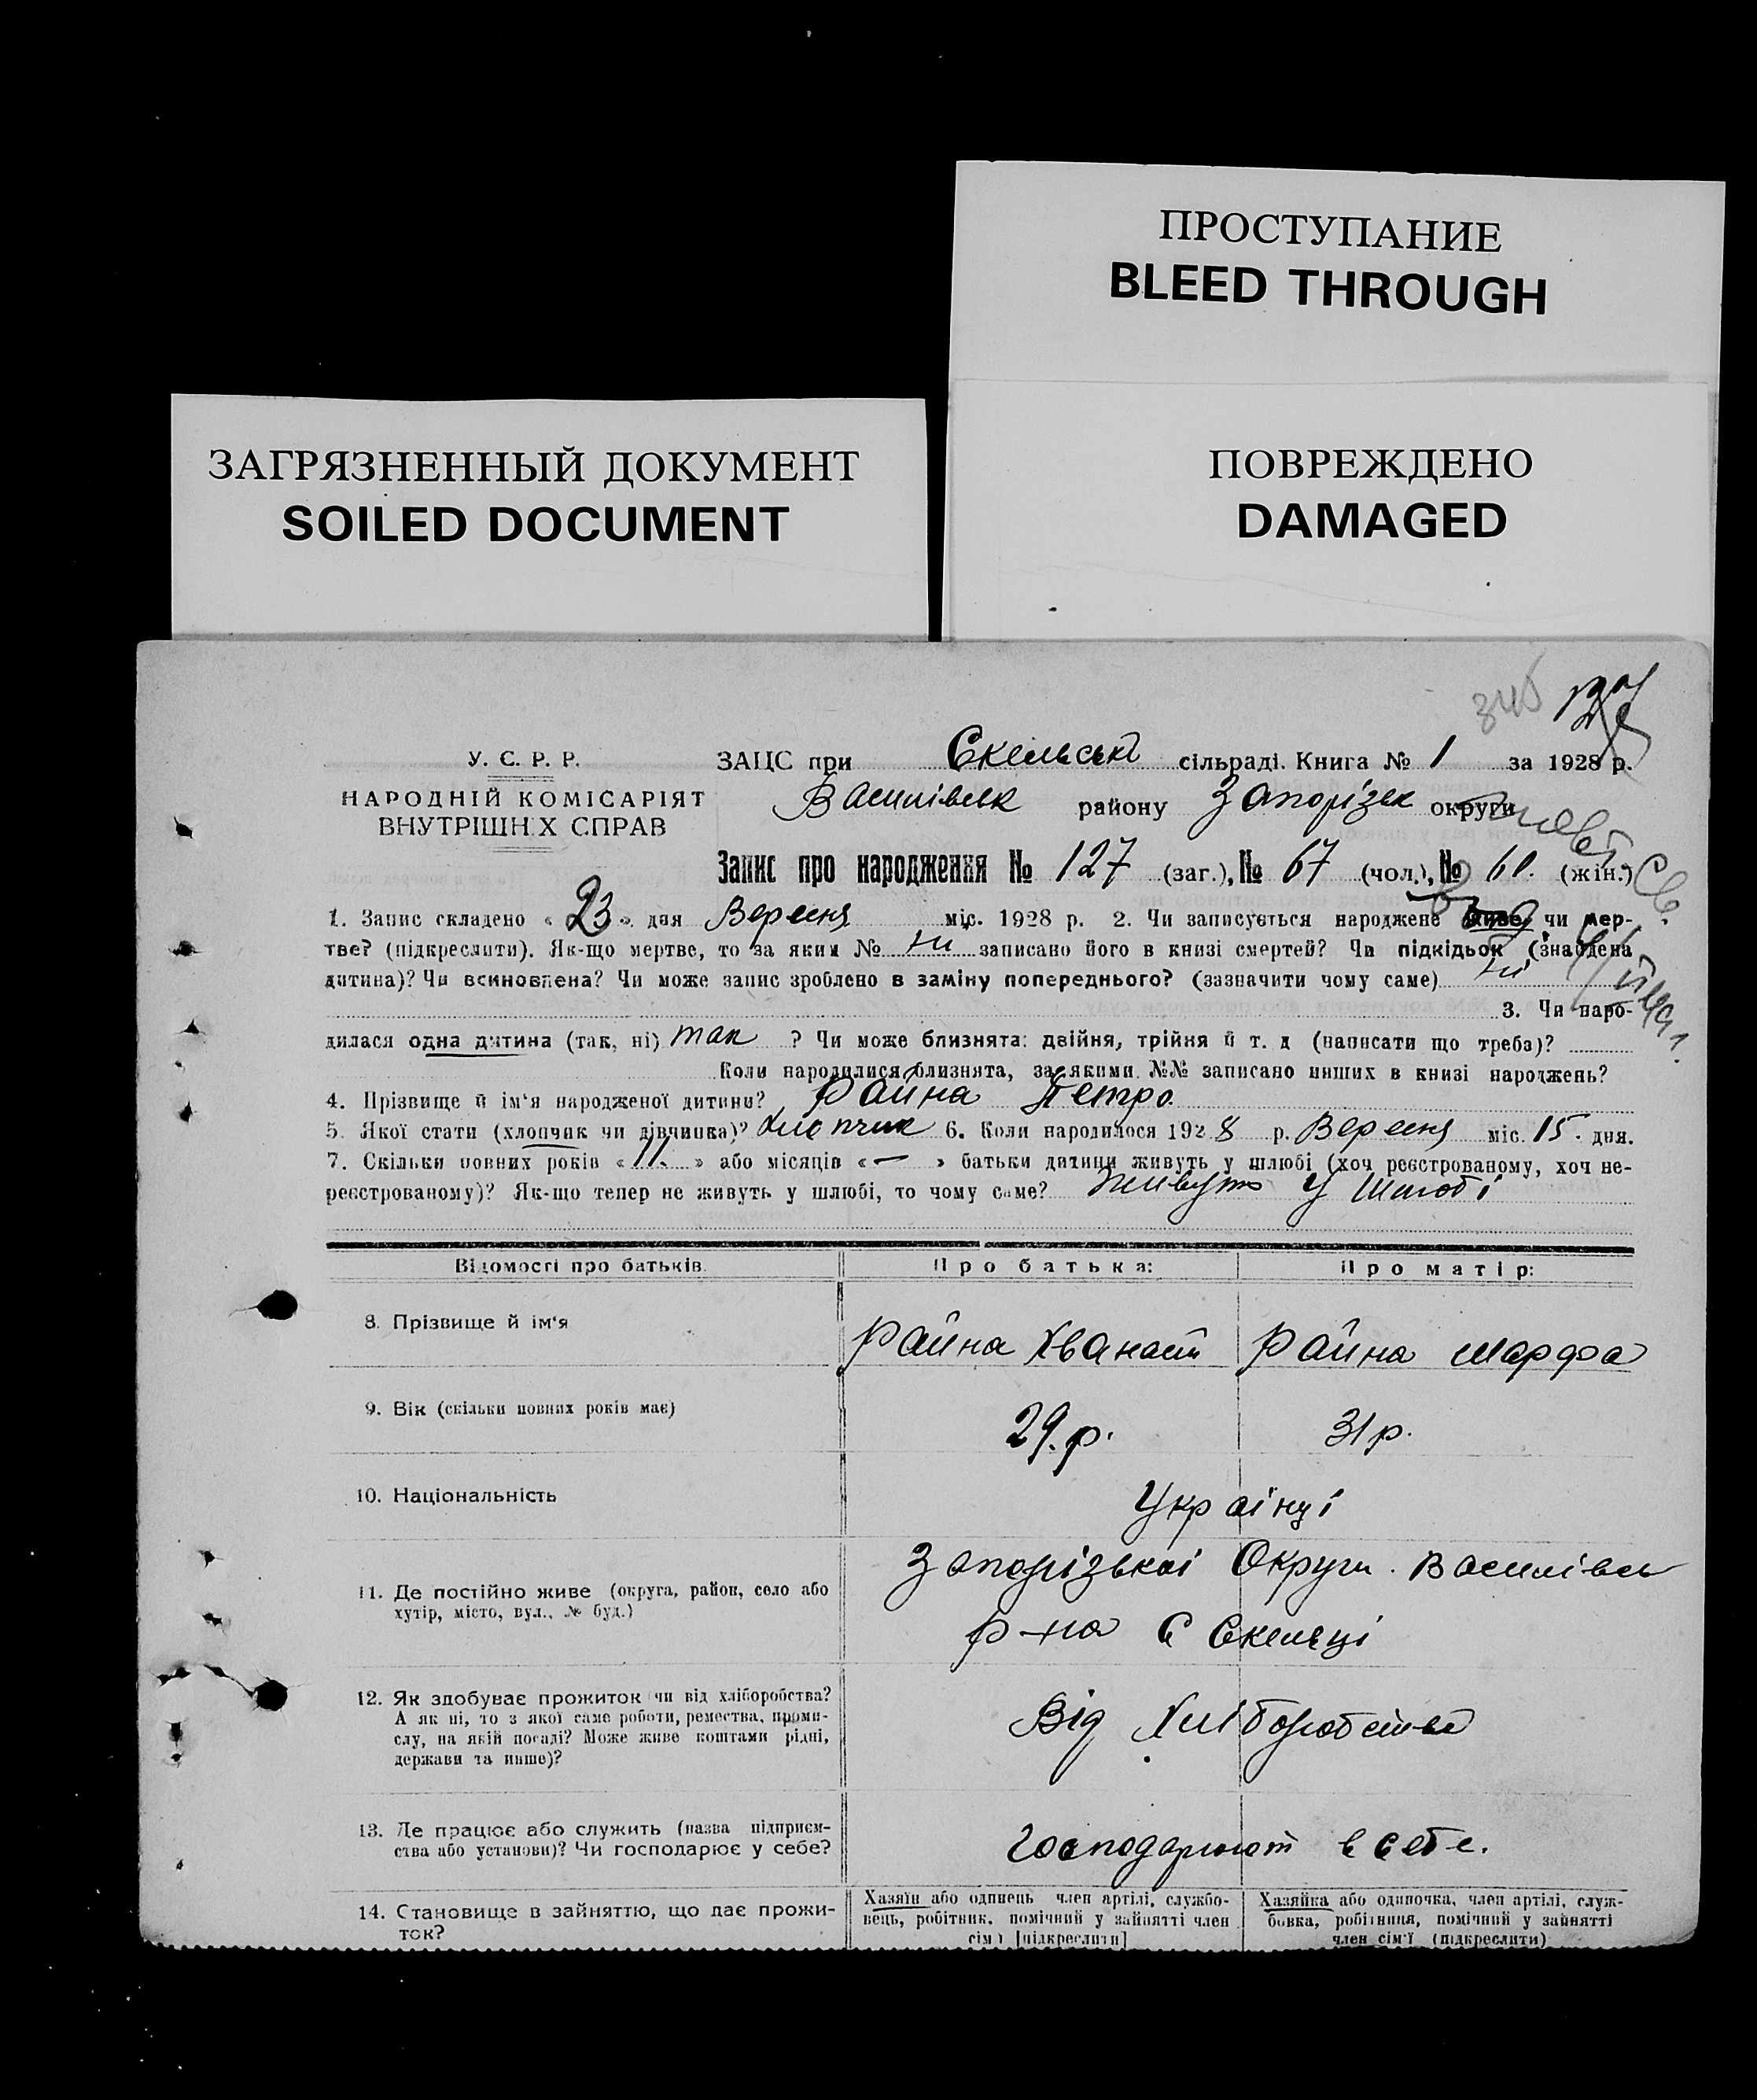 ПРОСТУПАНИЕ
BLEED THROUGH
ЗАГРЯЗНЕННЫЙ ДОКУМЕНТ
SOILED DOCUMENT
ПОВРЕЖДЕНО
DAMAGED
345 127
У. С. Р. Р.
НАРОДНІЙ КОМІСАРІЯТ
ВНУТРІШНІХ СПРАВ
ЗАЦС при Скельській сільраді. Книга № 1 за 1928 р.
Василівськ району Запорізьк округи
Запис про народження № 127 (заг.), № 67 (чол.), № 60. (жін.)
1. Запис складено « 23 » дня Вересня міс. 1928 р. 2. Чи записується народжене живе, чи мер-
тве? (підкреслити). Як-що мертве, то за яким № ні записано його в книзі смертей? Чи підкідьок (знайдена
дитина)? Чи всиновлена? Чи може запис зроблено в заміну попереднього? (зазначити чому саме) ні
3. Чи наро-
дилася одна дитина (так, ні) так ? Чи може близнята: двійня, трійня й т. д (написати що треба)?
Коли народилися близнята, за якими №№ записано инших в книзі народжень?
4. Прізвище й ім'я народженої дитини? Райна Петро
5. Якої стати (хлопчик чи дівчинка)? Хлопчик 6. Коли народилося 1928 р. Вересня міс. 15. дня.
7. Скільки повних років « 11. » або місяців « — » батьки дитини живуть у шлюбі (хоч реєстрованому, хоч не-
реєстрованому)? Як-що тепер не живуть у шлюбі, то чому саме? Живуть у шлюбі
Відомості про батьків Про батька: Про матір:
8. Прізвище й ім'я Райна Хванасій Райна Марфа
9. Вік (скільки повних років має) 29.р. 31р.
10. Національність Українці
11. Де постійно живе (округа, район, село або
хутір, місто, вул., № буд.)
Запорізькоі Округи. Василівсь
р-на с Скельці
12. Як здобуває прожиток чи від хліборобства?
А як ні, то з якої саме роботи, ремества, проми-
слу, на якій посаді? Може живе коштами рідні,
держави та инше)?
Від Хліборобства
13. Де працює або служить (назва підприєм-
ства або установи)? Чи господарює у себе?
Господарюют в себе.
14. Становище в зайняттю, що дає прожи-
ток?
Хазяїн або одинець член артілі, службо-
вець, робітник. помічний у зайнятті член
сім'ї [підкреслити]
Хазяйка або одиночка, член артілі, служ-
бовка, робітниця, помічний у зайнятті
член сім'ї (підкреслити)